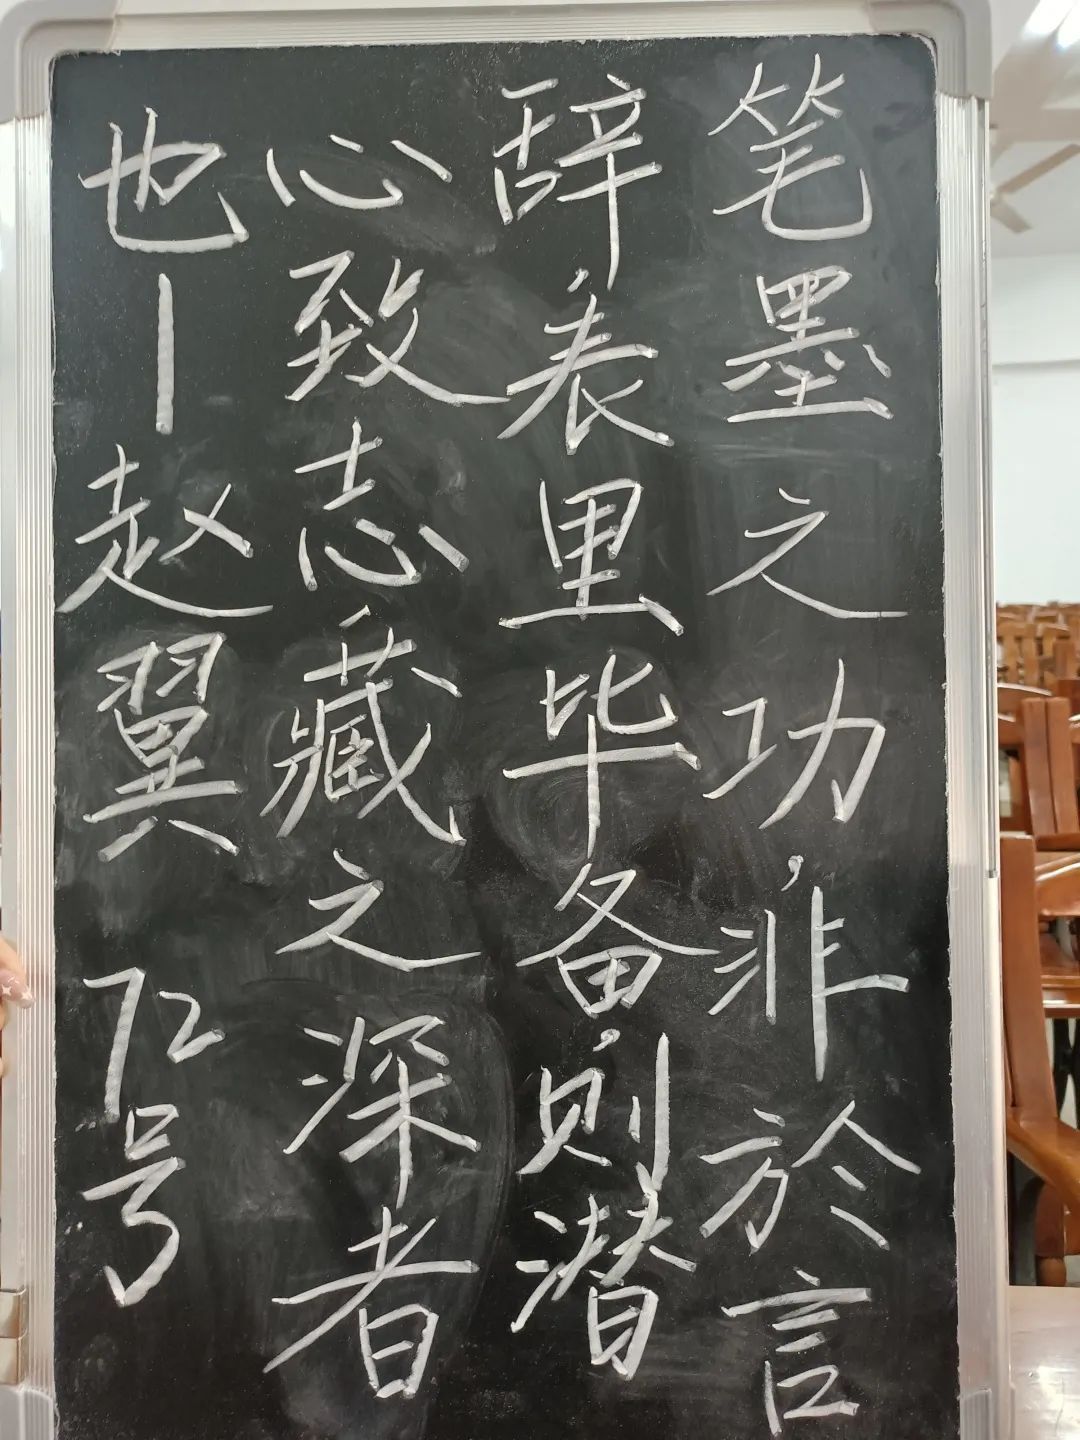 笔墨之功，非於言
辞，表里毕备，则潜
心致志藏之深者
也—赵翼 72号